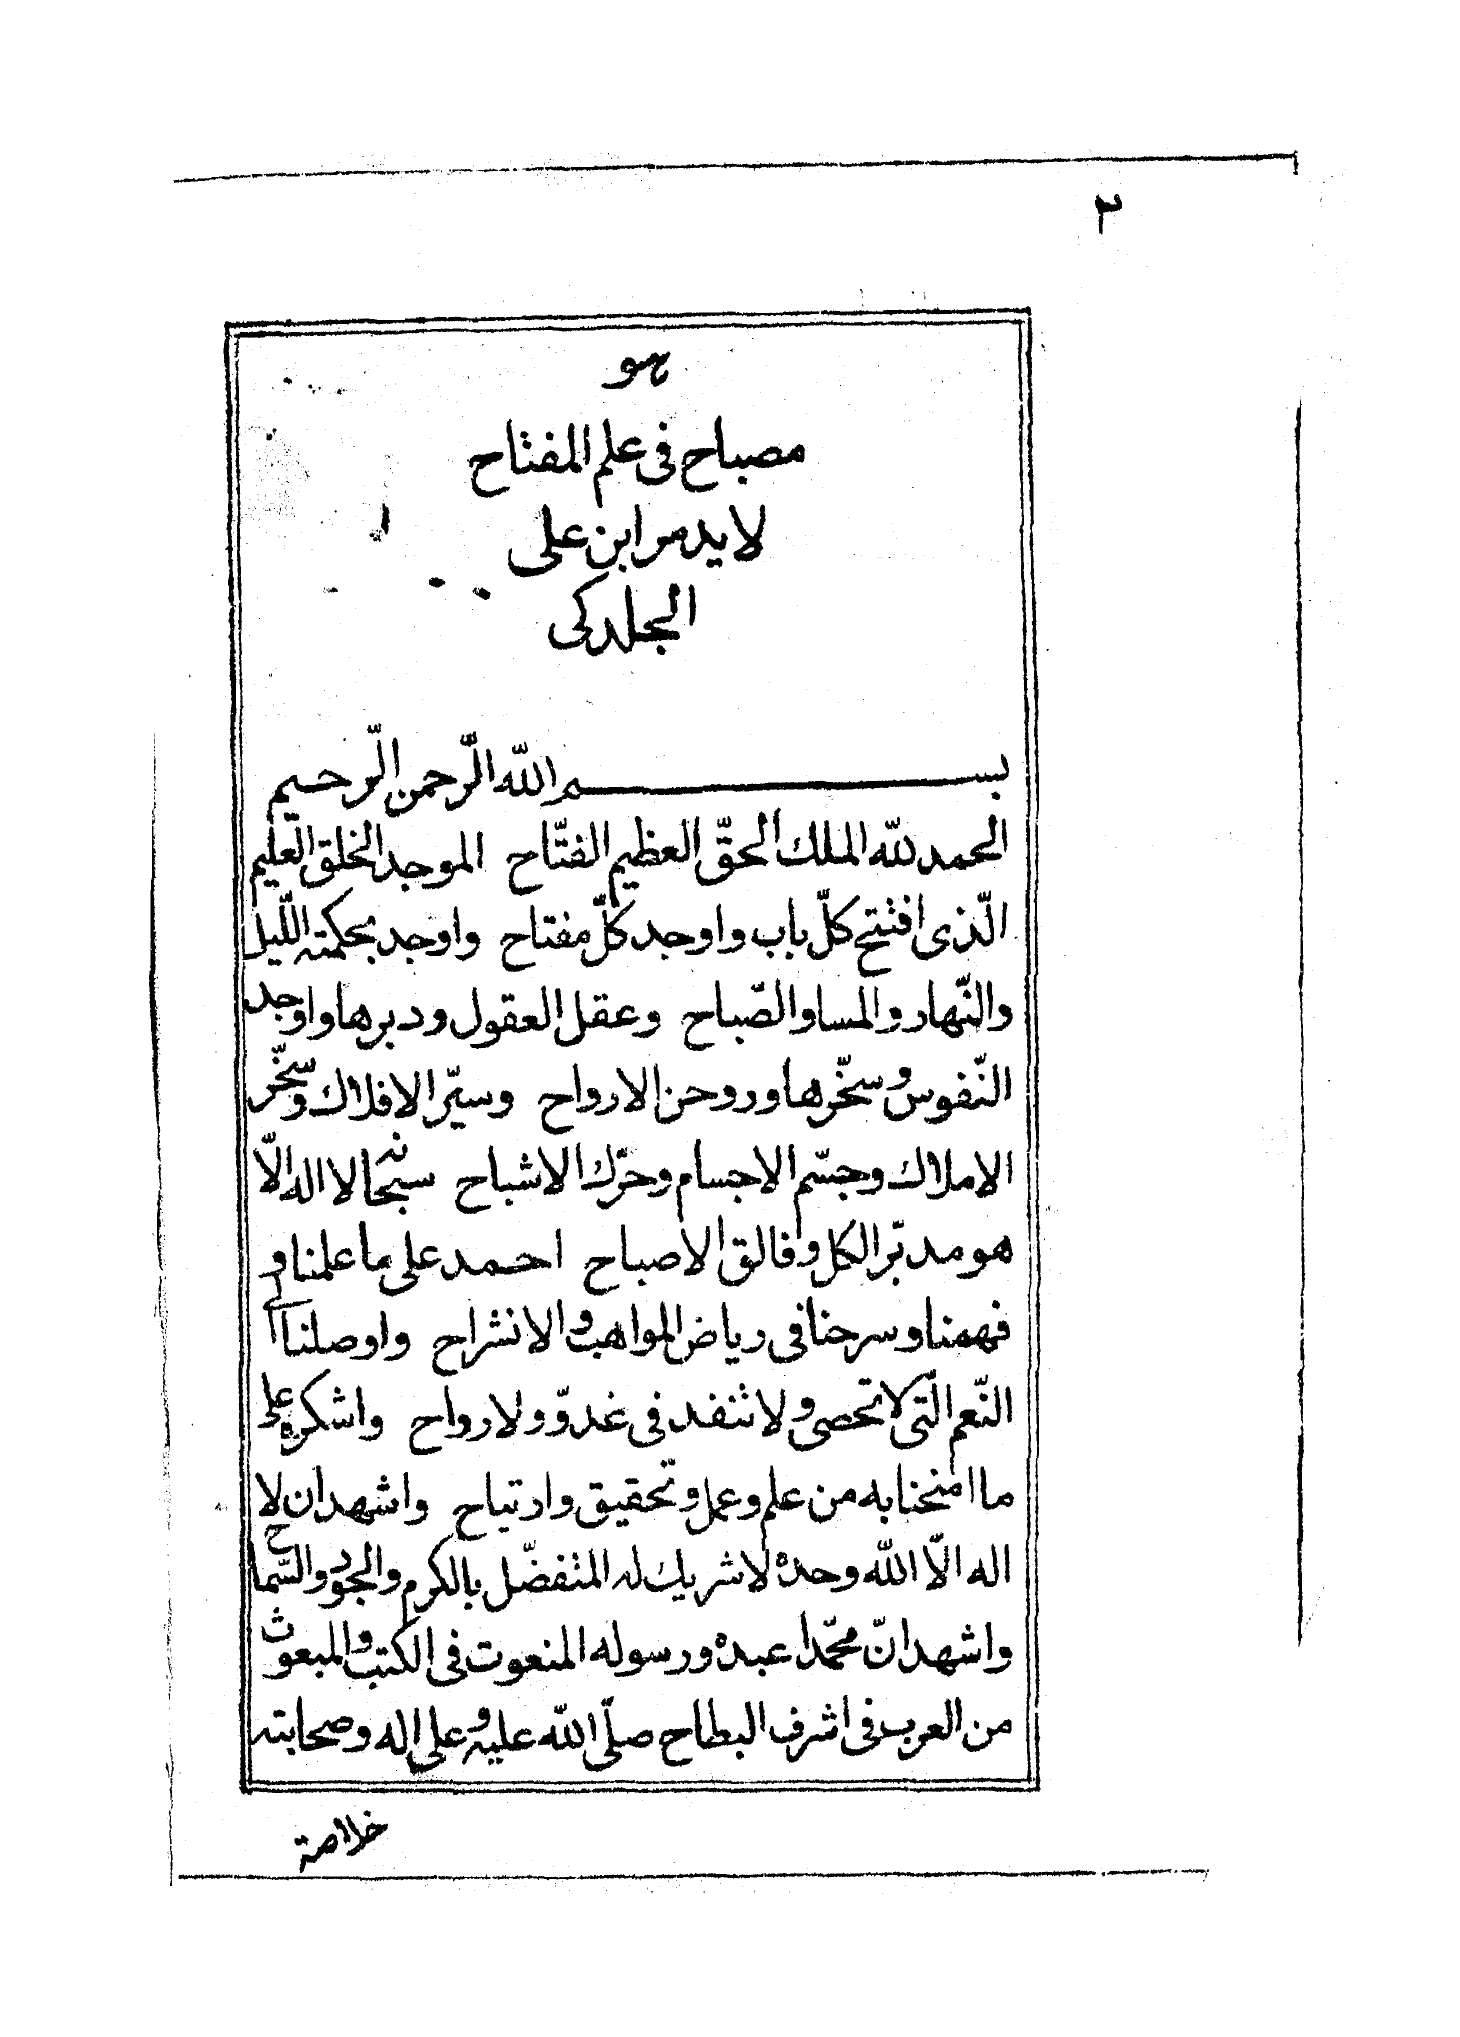 ٢
هو
مصباح فى علم المفتاح
لايدمر ابن على
الجلدكى
بسم الله الرّحمن الرّحيم
الحمد لله الملك الحقّ العظيم الفتّاح الموجد الخلق العليم
الّذى افتتح كلّ باب واوجد كلّ مفتاح واوجد بحكمته اللّيل
والنّهار والمسا والصّباح وعقل العقول ودبرها واوجد
النّفوس وسخّرها وروحن الارواح وسيّر الافلاك وسخّر
الاملاك وجسّم الاجسام وحرّك الاشباح سبحانه لا اله الّا
هو مدبّر الكل وفالق الاصباح احمد على ما علمنا و
فهمنا وسرحنا فى رياض المواهب والانشراح واوصلنا الى
النّعم الّتى لا تحصى ولا تنفد فى غدوّ ولا رواح واشكره على
ما امنحنا به من علم وعمل وتحقيق وارتياح واشهد ان لا
اله الّا الله وحده لا شريك له المتفضّل بالكرم والجود والسّماح
واشهد انّ محمّدا عبده ورسوله المنعوت فى الكتب والمبعوث
من العرب فى اشرف البطاح صلّى الله عليه وعلى اله وصحابته
خلاصة